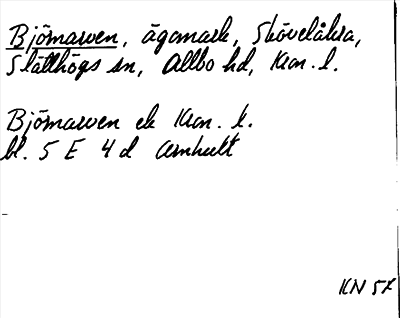 Björnarven, ägomark, Skövelåkra,
Slätthögs sn, Allbo hd, Kron. l.
Björnarven ek Kron. k.
bl. 5 E 4 d Arnhult
KN 57